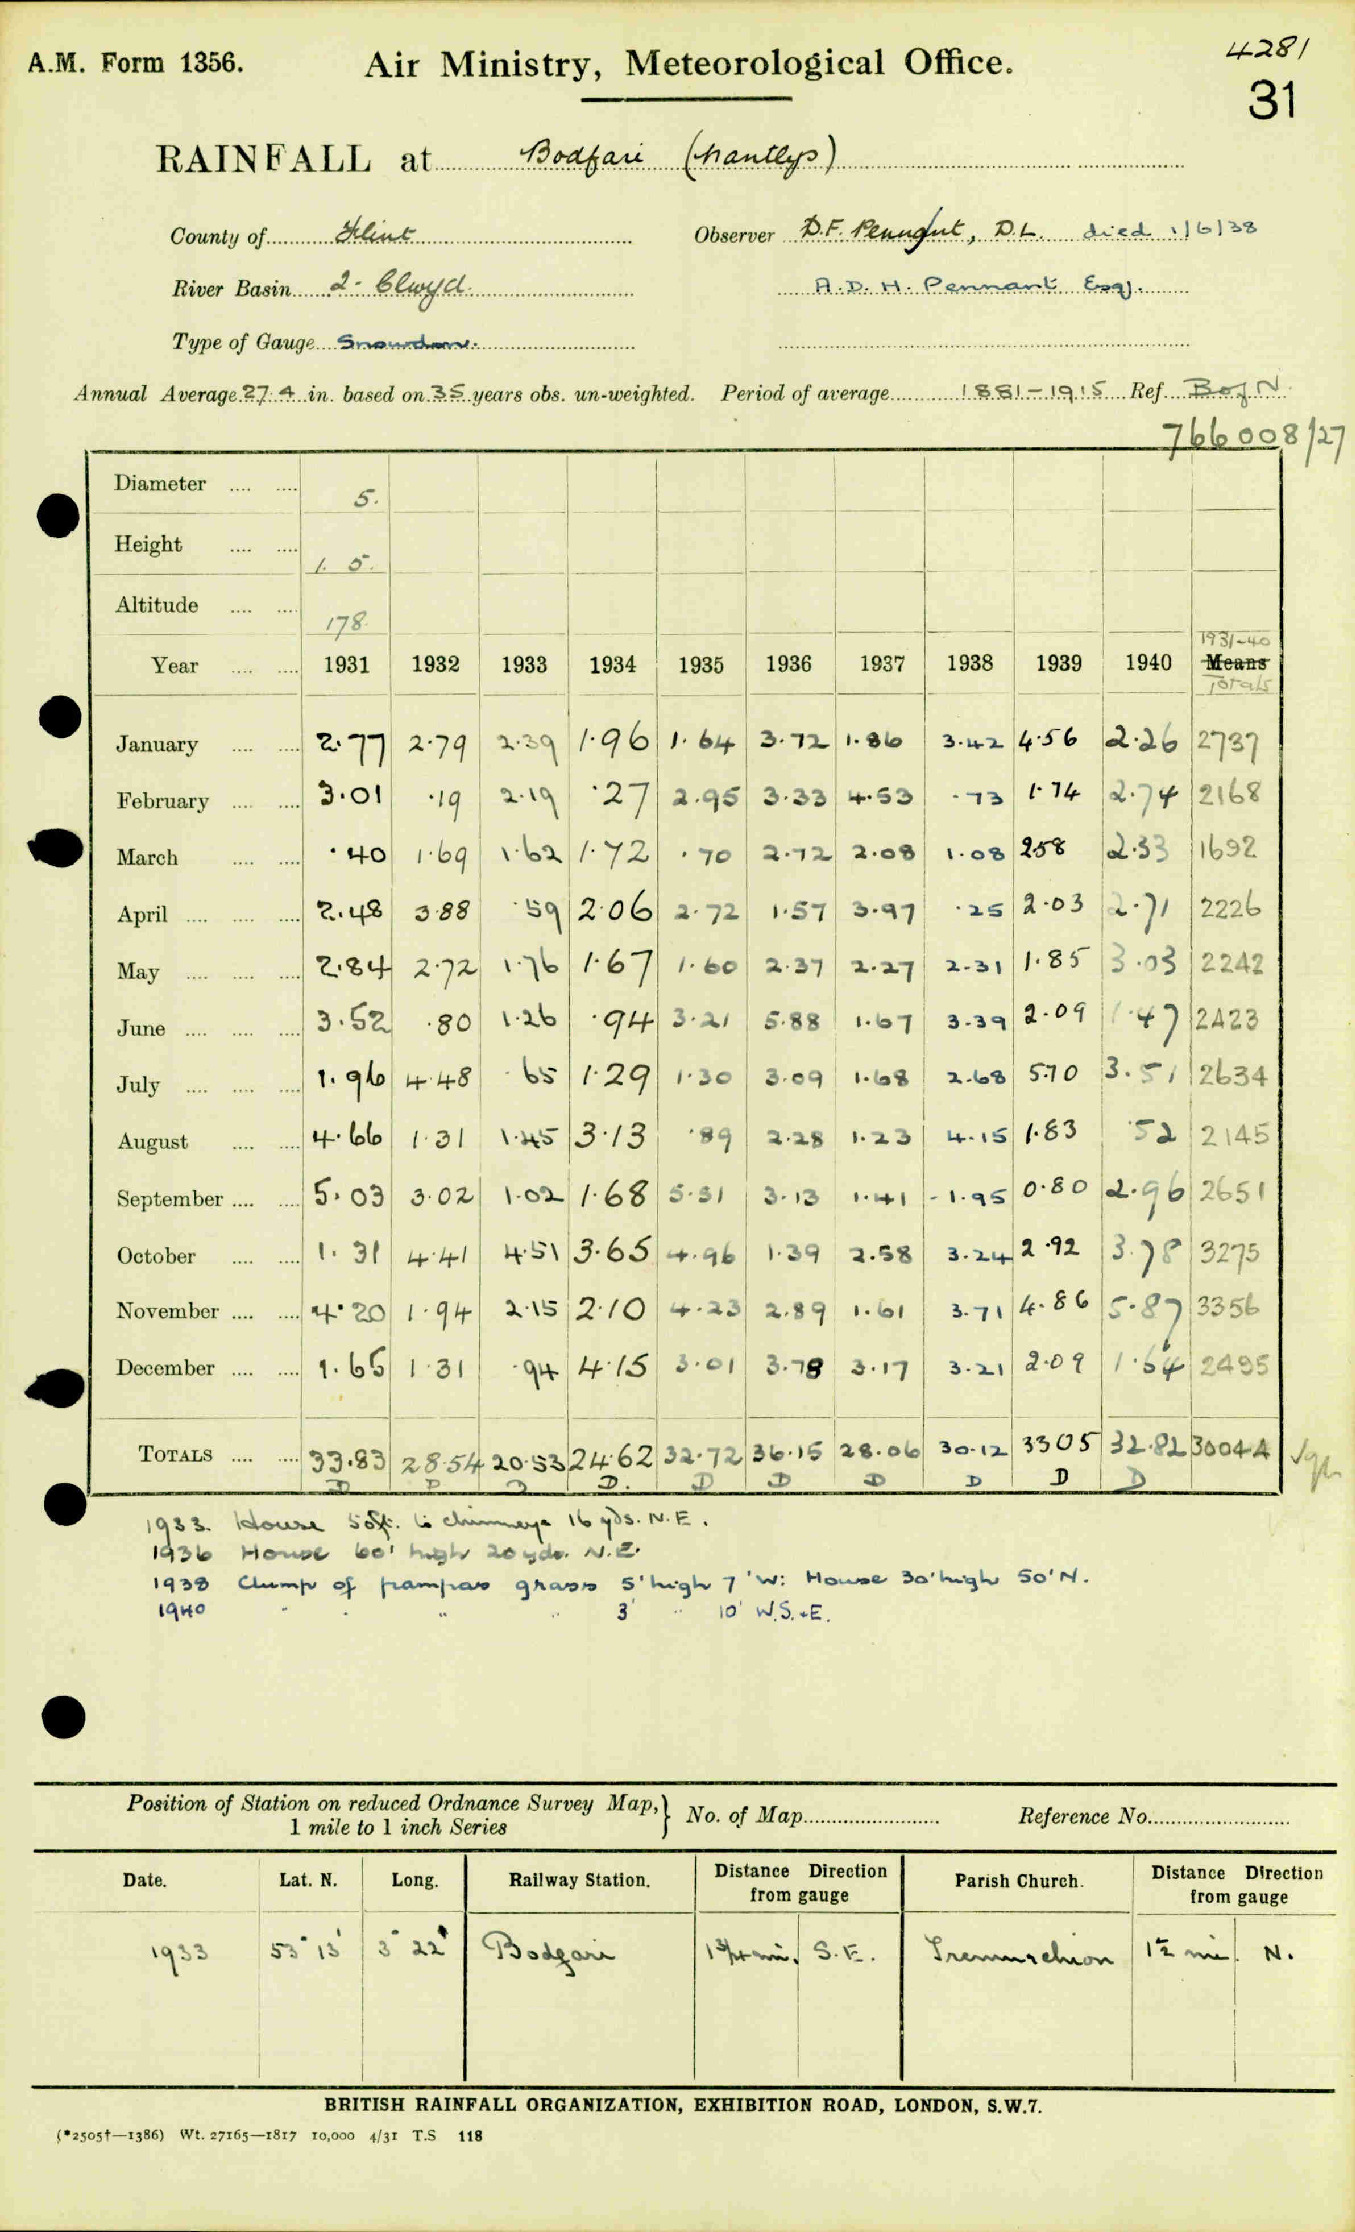 A.M. Form 1356.
Air Ministry, Meteorological Office.
4281
31
RAINFALL at Bodfari (Nantlys)
County of Flint
Observer D.F. Pennant, D.L. died 1/6/38
River Basin 2. Clwyd.
A.D.H. Pennant Esq.
Type of Gauge Snowdon.
Annual Average 27.4 in. based on 35 years obs. un-weighted. Period of average 1881-1915 Ref. B of N.
766008/27
Diameter 5.
Height 1. 5.
Altitude 178.
1931-40
Year 1931 1932 1933 1934 1935 1936 1937 1938 1939 1940 Means
Totals
January 2.77 2.79 2.39 1.96 1.64 3.72 1.86 3.42 4.56 2.26 2737
February 3.01 .19 2.19 .27 2.95 3.33 4.53 .73 1.74 2.74 2168
March .40 1.69 1.62 1.72 .70 2.72 2.08 1.08 2.58 2.33 1692
April 2.48 3.88 .59 2.06 2.72 1.57 3.97 .25 2.03 2.71 2226
May 2.84 2.72 1.76 1.67 1.60 2.37 2.27 2.31 1.85 3.03 2242
June 3.52 .80 1.26 .94 3.21 5.88 1.67 3.39 2.09 1.47 2423
July 1.96 4.48 .65 1.29 1.30 3.09 1.68 2.68 5.70 3.51 2634
August 4.66 1.31 1.45 3.13 .89 2.28 1.23 4.15 1.83 .52 2145
September 5.03 3.02 1.02 1.68 5.51 3.13 1.41 1.95 0.80 2.96 2651
October 1.31 4.41 4.51 3.65 4.96 1.39 2.58 3.24 2.92 3.78 3275
November 4.20 1.94 2.15 2.10 4.23 2.89 1.61 3.71 4.86 5.87 3356
December 1.65 1.31 .94 4.15 3.01 3.78 3.17 3.21 2.09 1.64 2495
TOTALS 33.83 28.54 20.53 24.62 32.72 36.15 28.06 30.12 33.05 32.82 30044
D D D D. D D D D D D
1933. House 50ft. to chimneys 16 yds. N.E.
1936 House 60' high 20 yds. N.E.
1938 Clump of pampas grass 5' high 7' W: House 30' high 50' N.
1940 " " " 3' " 10' W.S.+E.
Position of Station on reduced Ordnance Survey Map, } No. of Map Reference No.
1 mile to 1 inch Series
Date. Lat. N. Long. Railway Station. Distance Direction from gauge Parish Church. Distance Direction from gauge
1933 53° 13' 3° 22' Bodfari 1 3/4 mi. S.E. Tremeirchion 1 1/2 mi. N.
BRITISH RAINFALL ORGANIZATION, EXHIBITION ROAD, LONDON, S.W.7.
(*2505†—1386) Wt. 27165—1817 10,000 4/31 T.S 118